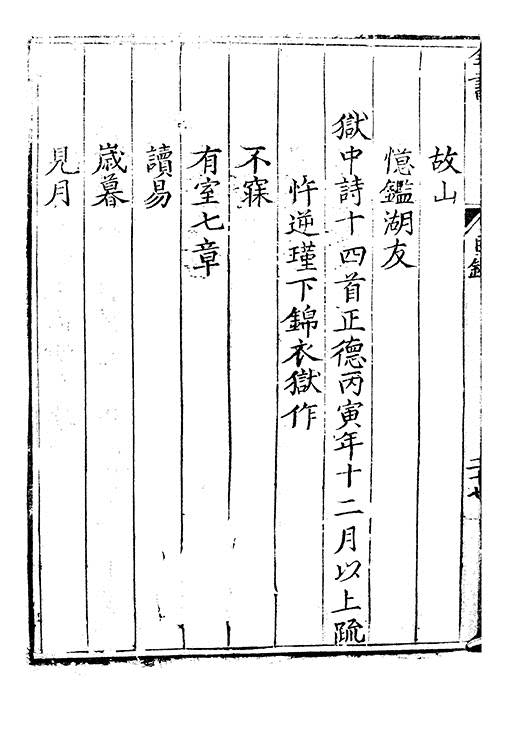 故山
憶鑑湖友
獄中詩十四首正德丙寅年十二月以上疏
忤逆瑾下錦衣獄作
不寐
有室七章
讀易
歲暮
見月